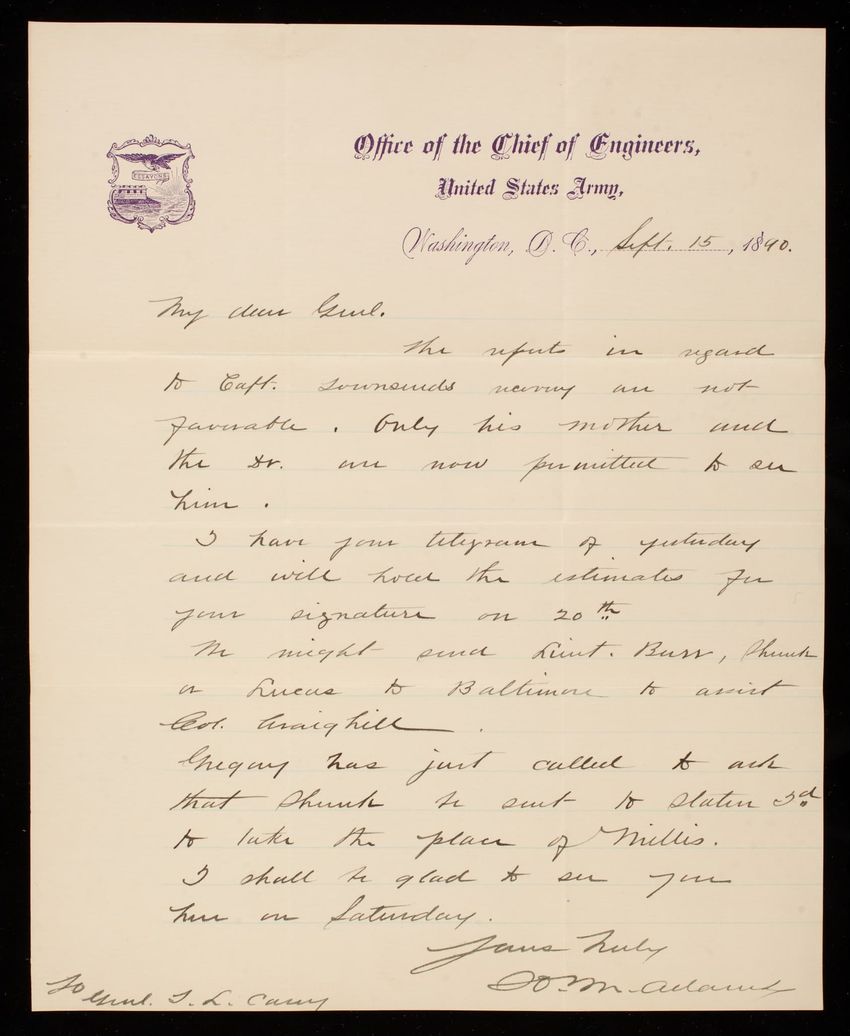 ESSAYONS
Office of the Chief of Engineers,
United States Army,
Washington, D. C., Sept. 15, 1890.
My dear Genl.
The reports in regard
to Capt. Townsends recovery are not
favorable. Only his mother and
the Dr. are now permitted to see
him.
I have your telegram of yesterday
and will hold the estimates for
your signature on 20th
We might send Lieut. Burr, Shunk
or Lucas to Baltimore to assist
Col. Craighill.
Gregory has just called to ask
that Shunk be sent to Staten Id
to take the place of Millis.
I shall be glad to see you
here on Saturday.
Yours truly
M. Adams
To Genl. T. L. Casey